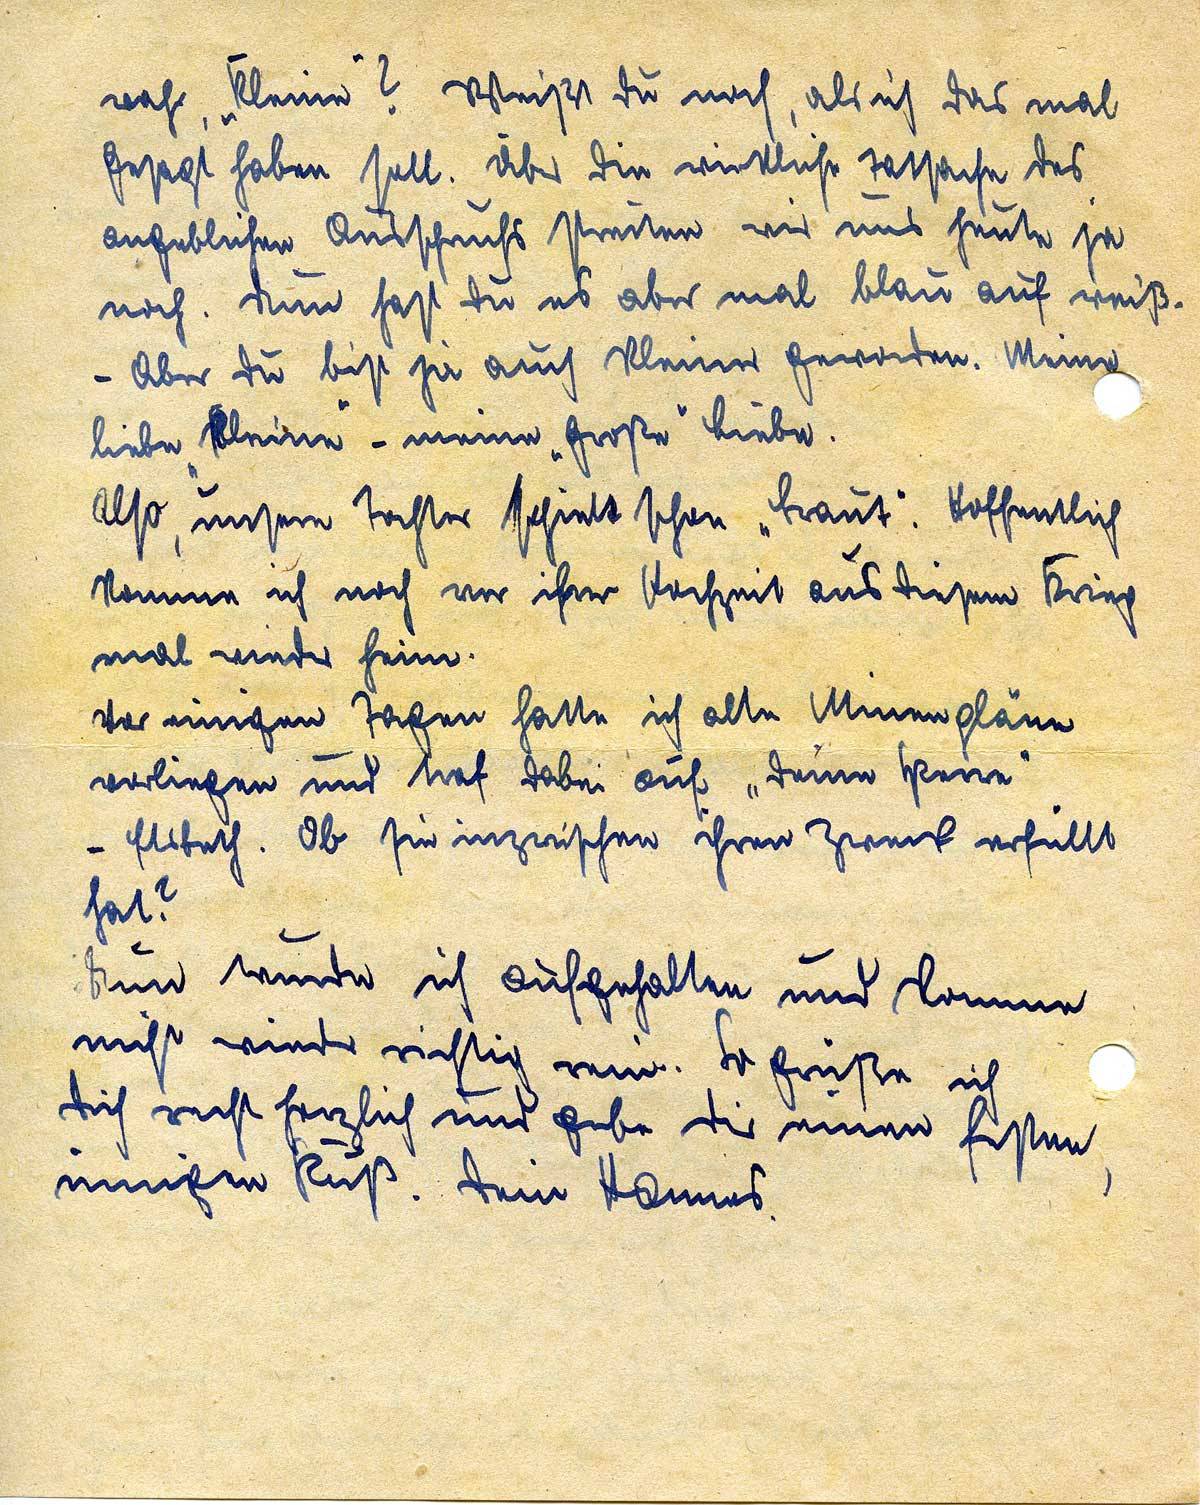 wahr, „Kleine"? Weißt Du noch, als ich das mal
gesagt haben soll. Über die wirkliche Tatsache des
angeblichen Ausspruchs streiten wir uns heute ja
noch. Nun hast Du es aber mal blau auf weiß.
- Aber Du bist ja auch kleiner geworden. Meine
liebe „Kleine" - meine „große" Liebe.
Also, unsere Tochter spielt schon „Braut". Hoffentlich
komme ich noch vor ihrer Hochzeit aus diesem Krieg
mal wieder heim.
Vor einigen Tagen hatte ich alte Minenpläne
vorliegen und traf dabei auf „Deine Sperre"
- Elsbeth. Ob sie inzwischen ihren Zweck erfüllt
hat?
Nun wurde ich aufgehalten und komme
nicht wieder richtig rein. So grüße ich
Dich recht herzlich und gebe Dir einen festen,
innigen Kuß. Dein Hannes.